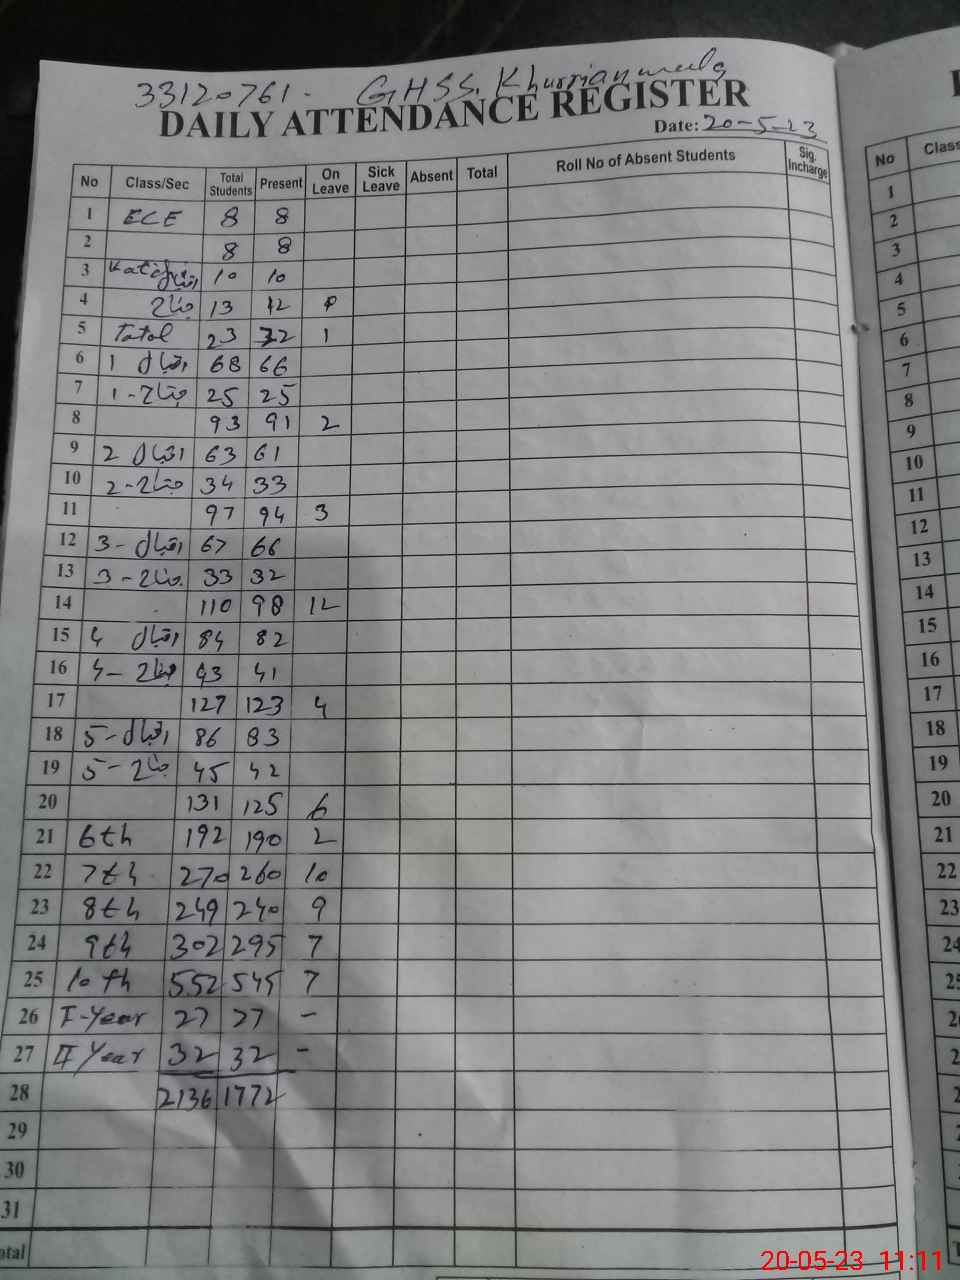 33120761 - GHSS. Khurrianwala
DAILY ATTENDANCE REGISTER
Date: 20-5-23
No Class/Sec Total Students Present On Leave Sick Leave Absent Total Roll No of Absent Students Sig. Incharge
1 ECE 8 8
2 8 8
3 Katchi اقبال 10 10
4 جناح 13 12
5 Total 23 22 1
6 1 اقبال 68 66
7 1 - جناح 25 25
8 93 91 2
9 2 اقبال 63 61
10 2 - جناح 34 33
11 97 94 3
12 3 - اقبال 67 66
13 3 - جناح 33 32
14 110 98 12
15 4 اقبال 84 82
16 4 - جناح 43 41
17 127 123 4
18 5 - اقبال 86 83
19 5 - جناح 45 42
20 131 125 6
21 6th 192 190 2
22 7th 270 260 10
23 8th 249 240 9
24 9th 302 295 7
25 10th 552 545 7
26 I-Year 27 27 -
27 II Year 32 32 -
28 2136 1772
29
30
31
otal
No Class
1
2
3
4
5
6
7
8
9
10
11
12
13
14
15
16
17
18
19
20
21
22
23
24
20-05-23 11:11